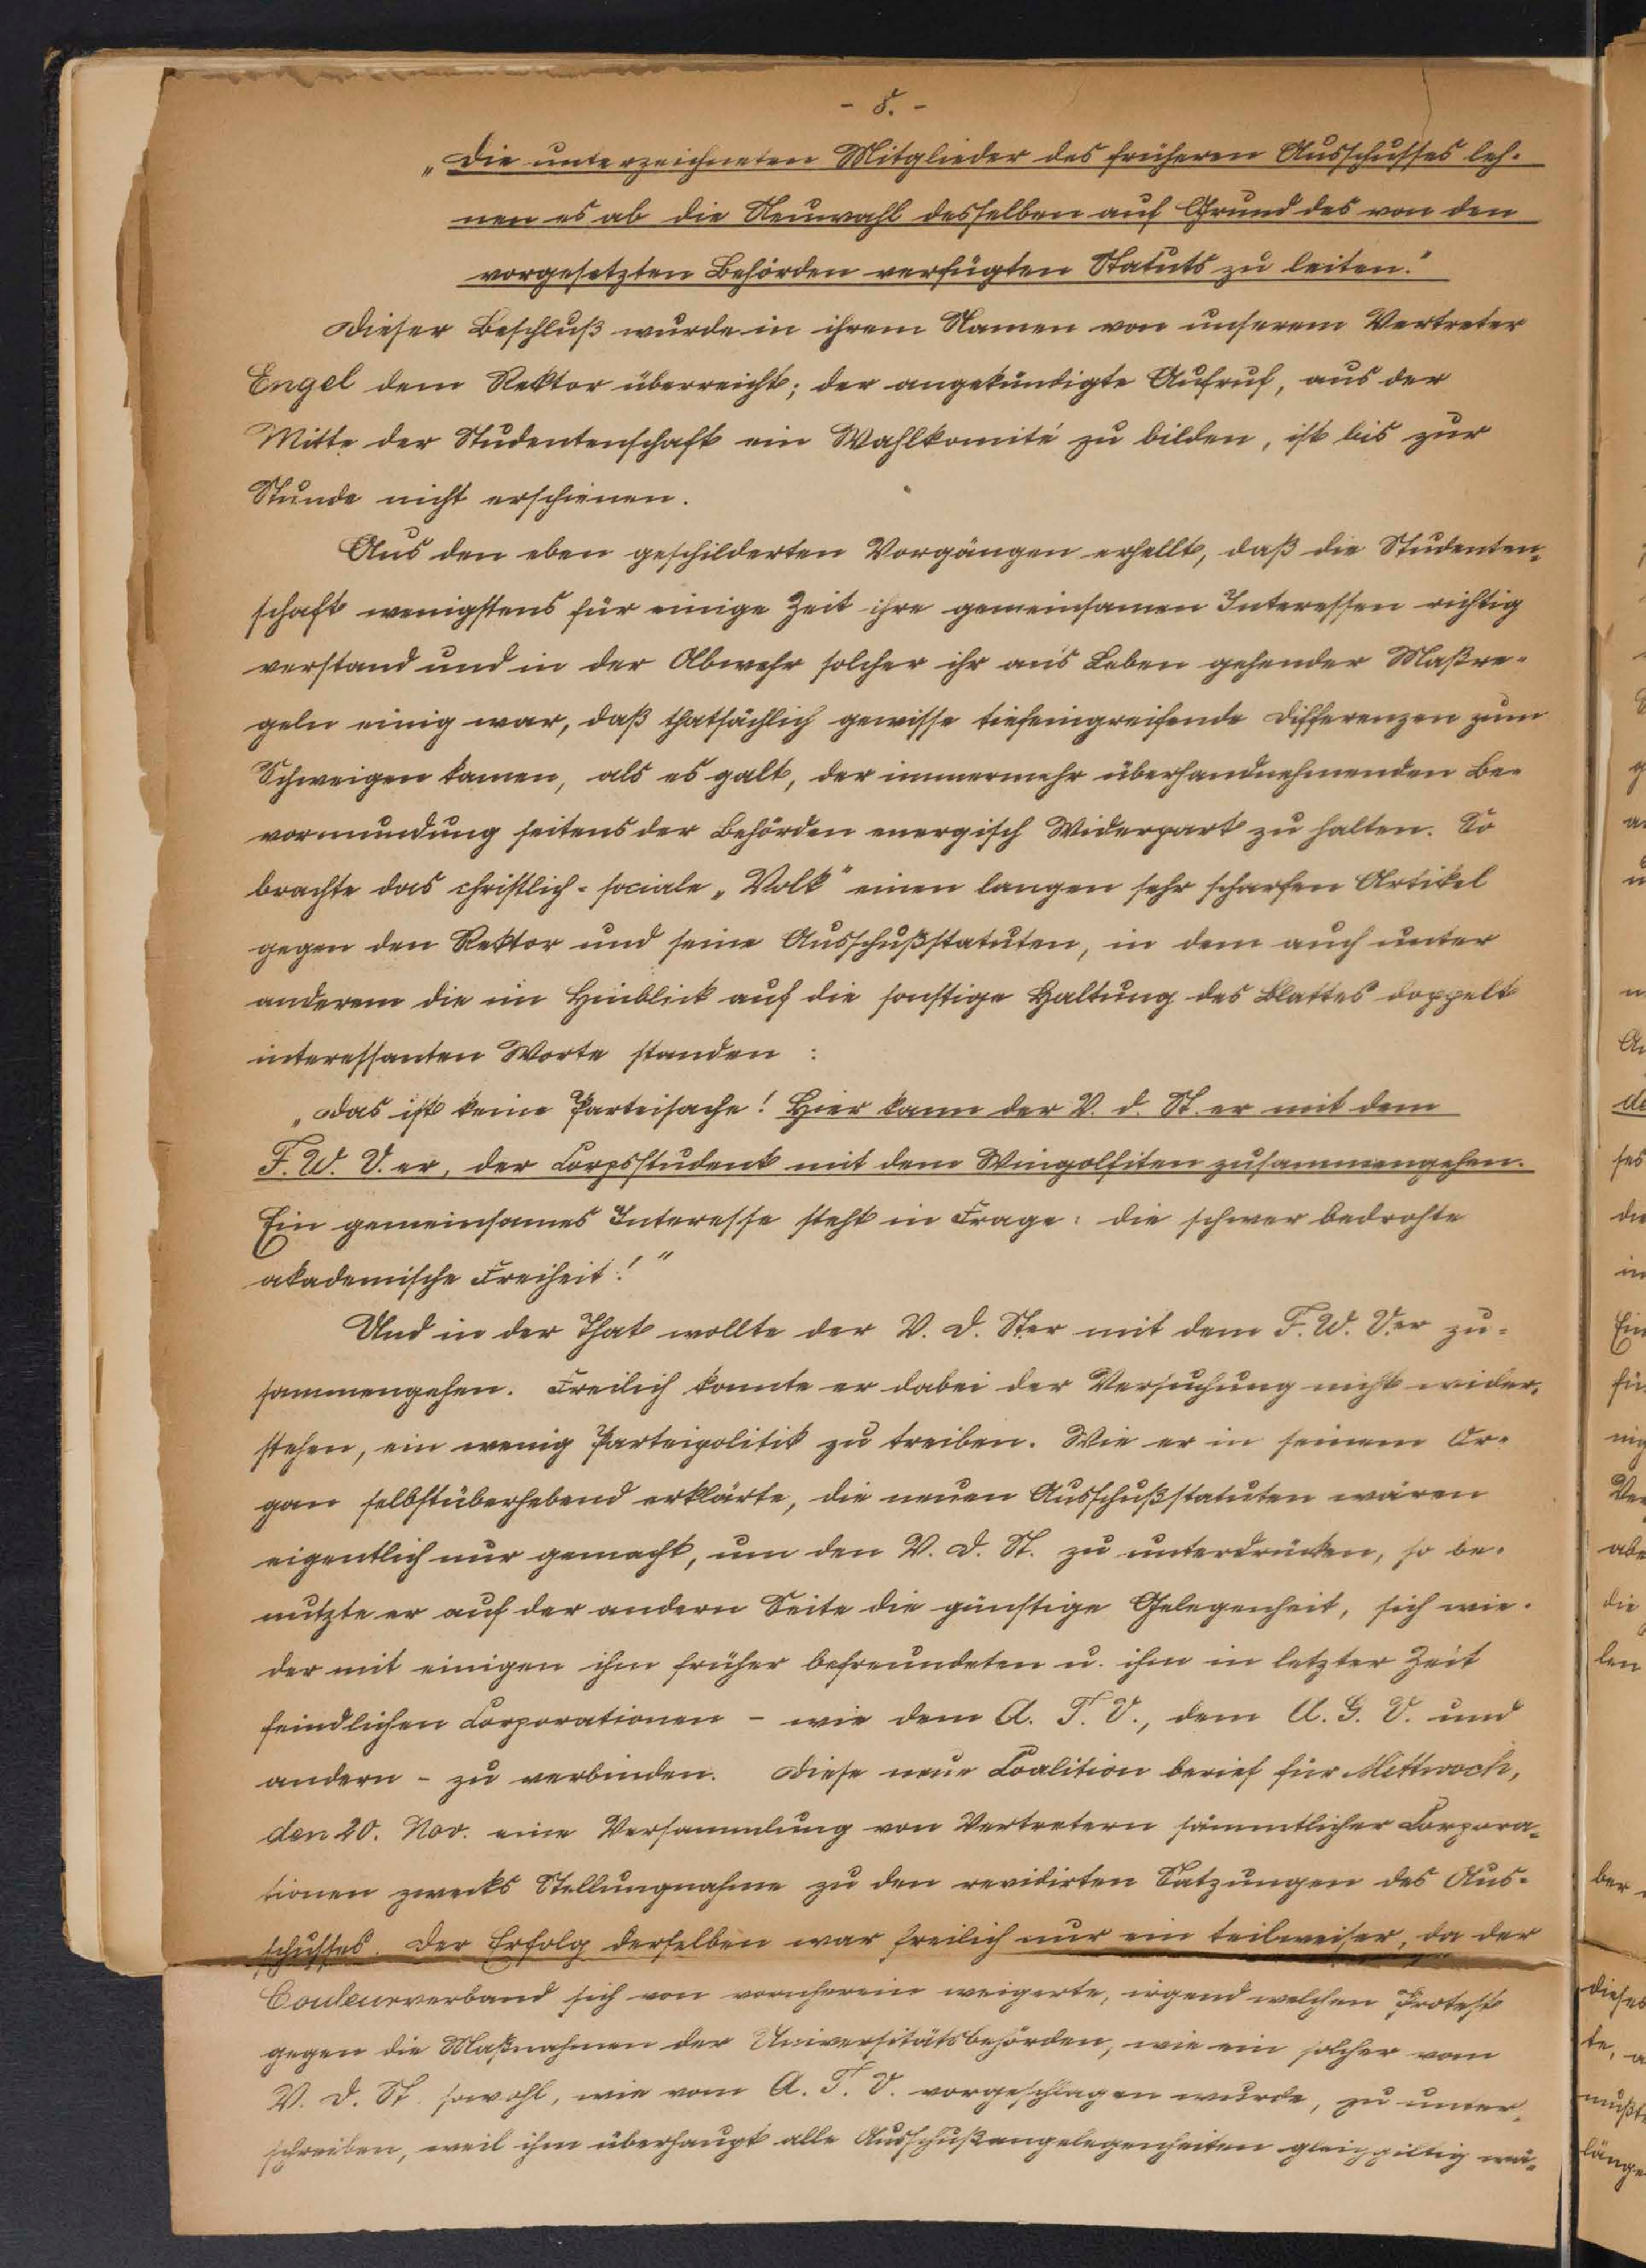 - 8. -
„Die unterzeichneten Mitglieder des früheren Ausschusses leh-
nen es ab die Neuwahl desselben auf Grund des von den
vorgesetzten Behörden verfügten Statuts zu leiten."
Dieser Beschluß wurde in ihrem Namen von unserem Vertreter
Engel dem Rektor überreicht; der angekündigte Aufruf, aus der
Mitte der Studentenschaft ein Wahlkomité zu bilden, ist bis zur
Stunde nicht erschienen.
Aus den eben geschilderten Vorgängen erhellt, daß die Studenten-
schaft wenigstens für einige Zeit ihre gemeinsamen Interessen richtig
verstand und in der Abwehr solcher ihr an's Leben gehender Maßre-
geln einig war, daß thatsächlich gewisse tiefeingreifende Differenzen zum
Schweigen kamen, als es galt, der immermehr überhandnehmenden Be-
vormundung seitens der Behörden energisch Widerpart zu halten. So
brachte das christlich-sociale „Volk" einen langen sehr scharfen Artikel
gegen den Rektor und seine Ausschußstatuten, in dem auch unter
anderem die im Hinblick auf die sonstige Haltung des Blattes doppelt
interessanten Worte standen :
„Das ist keine Parteisache! Hier kann der V. d. St. er mit dem
F. W. V. er, der Corpsstudent mit dem Wingolfiten zusammengehen.
Ein gemeinsames Interesse steht in Frage: die schwer bedrohte
akademische Freiheit!"
Und in der That wollte der V. D. Ster mit dem F. W. Ver zu-
sammengehen. Freilich konnte er dabei der Versuchung nicht wider-
stehen, ein wenig Parteipolitik zu treiben. Wie er in seinem Or-
gan selbstüberhebend erklärte, die neuen Ausschußstatuten wären
eigentlich nur gemacht, um den V. D. St. zu unterdrücken, so be-
nutzte er auf der andern Seite die günstige Gelegenheit, sich wie-
der mit einigen ihm früher befreundeten u. ihm in letzter Zeit
feindlichen Corporationen - wie dem A. T. V., dem A. G. V. und
andern - zu verbinden. Diese neue Coalition berief für Mittwoch,
den 20. Nov. eine Versammlung von Vertretern sämmtlicher Corpora-
tionen zwecks Stellungnahme zu den revidirten Satzungen des Aus-
schusses. Der Erfolg derselben war freilich nur ein teilweiser, da der
Couleurverband sich von vornherein weigerte, irgend welchen Protest
gegen die Maßnahmen der Universitätsbehörden, wie ein solcher vom
V. D. St. sowohl, wie vom A. T. V. vorgeschlagen wurde, zu unter-
schreiben, weil ihm überhaupt alle Ausschußangelegenheiten gleichgiltig wä-